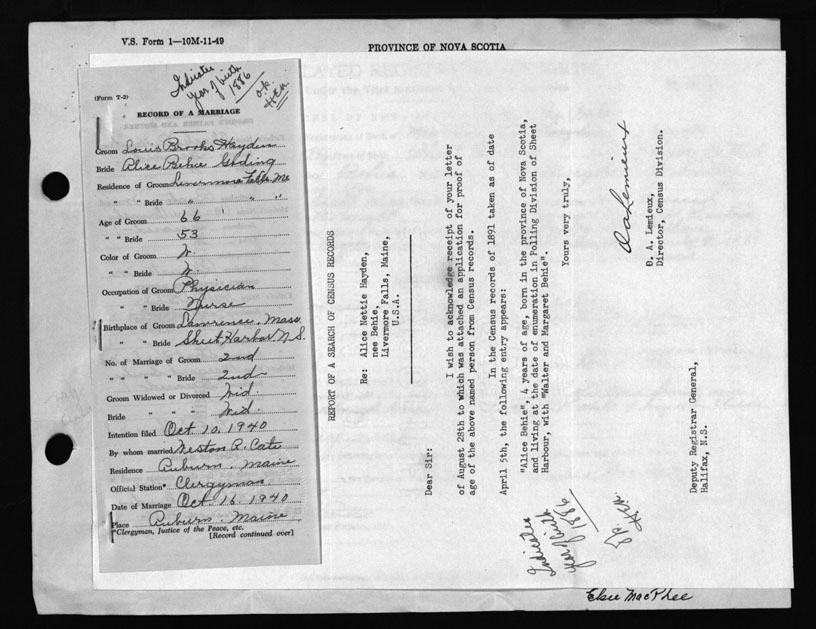 V.S. Form 1—10M-11-49
PROVINCE OF NOVA SCOTIA
Indicates
year of birth
1886
O.K.
(Form T-2)
RECORD OF A MARRIAGE
Groom Louis Brooks Hayden
Bride Alice Behie Goding
Residence of Groom Livermore Falls, Me
" " Bride " " "
Age of Groom 66
" " Bride 53
Color of Groom W.
" " Bride W.
Occupation of Groom Physician
" " Bride Nurse
Birthplace of Groom Lawrence, Mass.
" " Bride Sheet Harbor N.S.
No. of Marriage of Groom 2nd
" " " " Bride 2nd
Groom Widowed or Divorced Wid.
Bride " " " Wid.
Intention filed Oct. 10, 1940
By whom married Weston P. Cate
Residence Auburn, Maine
Official Station* Clergyman
Date of Marriage Oct. 16, 1940
Place Auburn, Maine
*Clergyman, Justice of the Peace, etc.
[Record continued over]
REPORT OF A SEARCH OF CENSUS RECORDS
Re: Alice Nettie Hayden,
nee Behie,
Livermore Falls, Maine,
U.S.A.
Dear Sir:
I wish to acknowledge receipt of your letter
of August 28th to which was attached an application for proof of
age of the above named person from Census records.
In the Census records of 1891 taken as of date
April 5th, the following entry appears:
"Alice Behie", 4 years of age, born in the province of Nova Scotia,
and living at the date of enumeration in Polling Division of Sheet
Harbour, with "Walter and Margaret Behie".
Yours very truly,
O A Lemieux
O. A. Lemieux,
Director, Census Division.
Indicates
year of birth
1886
Deputy Registrar General,
Halifax, N.S.
Elsie MacPhee